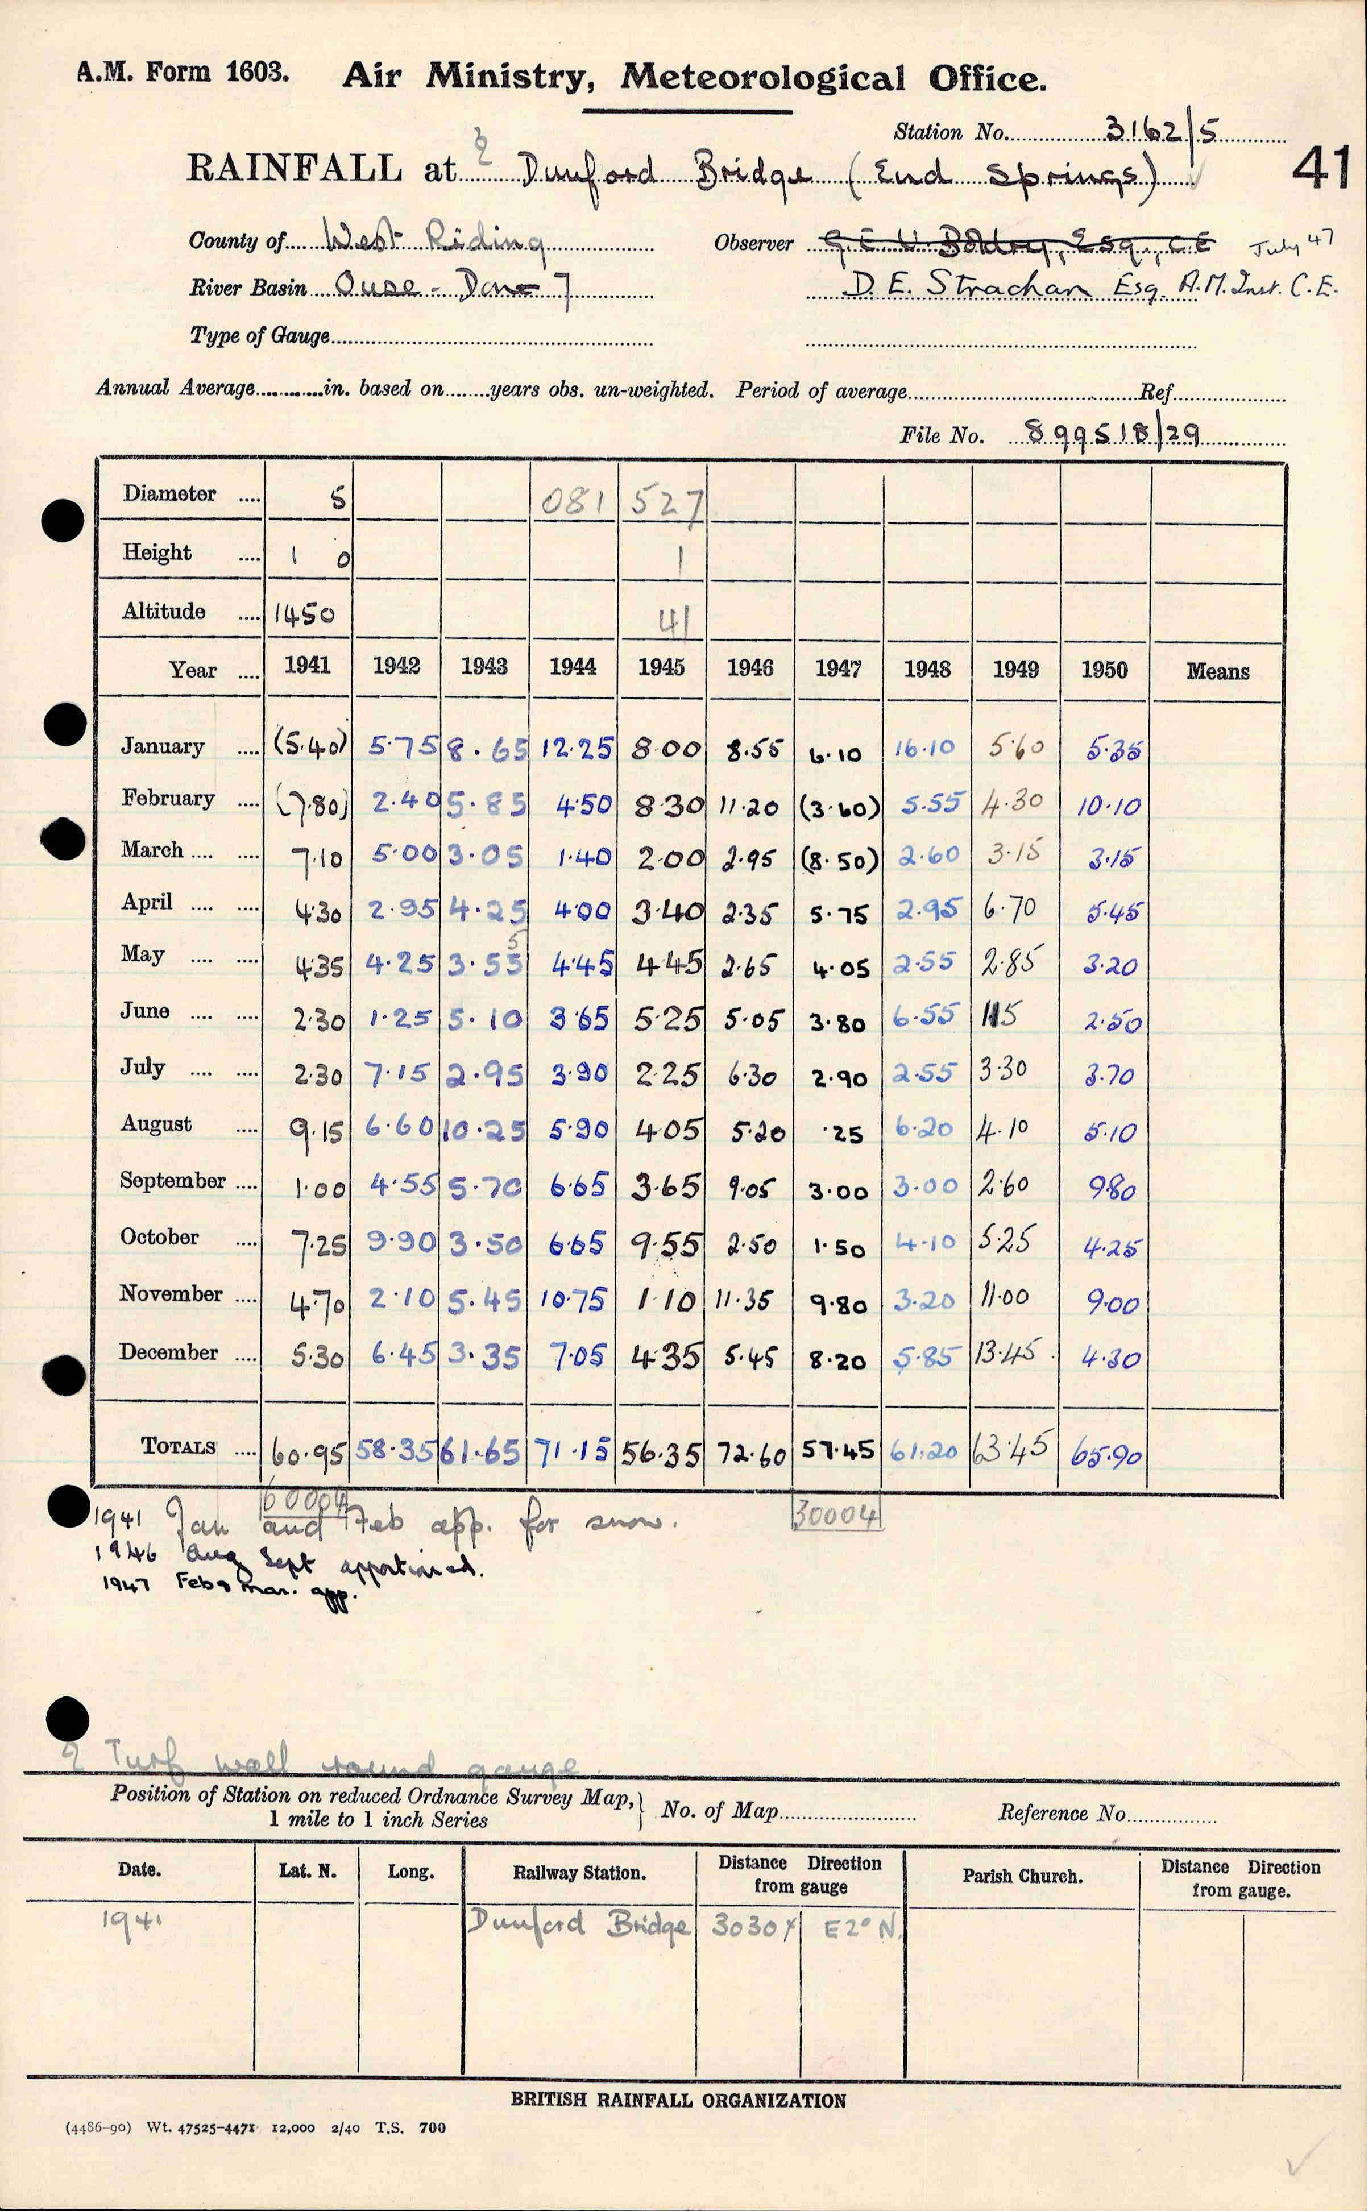 A.M. Form 1603. Air Ministry, Meteorological Office.
Station No. 3162/5
RAINFALL at Dunford Bridge (End Springs)
41
County of West Riding Observer G.E.U. Boldry, Esq., C.E July 47
River Basin Ouse - Don 7 D. E. Strachan Esq. A.M. Inst. C.E.
Type of Gauge
Annual Average in. based on years obs. un-weighted. Period of average Ref
File No. 899518/29
Diameter 5 081 527
Height 1 0 1
Altitude 1450 41
Year 1941 1942 1943 1944 1945 1946 1947 1948 1949 1950 Means
January (5.40) 5.75 8.65 12.25 8.00 8.55 6.10 16.10 5.60 5.35
February (7.80) 2.40 5.85 4.50 8.30 11.20 (3.60) 5.55 4.30 10.10
March 7.10 5.00 3.05 1.40 2.00 2.95 (8.50) 2.60 3.15 3.15
April 4.30 2.95 4.25 4.00 3.40 2.35 5.75 2.95 6.70 5.45
May 4.35 4.25 3.55 5 4.45 4.45 2.65 4.05 2.55 2.85 3.20
June 2.30 1.25 5.10 3.65 5.25 5.05 3.80 6.55 1.15 2.50
July 2.30 7.15 2.95 3.90 2.25 6.30 2.90 2.55 3.30 3.70
August 9.15 6.60 10.25 5.90 4.05 5.20 .25 6.20 4.10 5.10
September 1.00 4.55 5.70 6.65 3.65 9.05 3.00 3.00 2.60 9.80
October 7.25 9.90 3.50 6.65 9.55 2.50 1.50 4.10 5.25 4.25
November 4.70 2.10 5.45 10.75 1.10 11.35 9.80 3.20 11.00 9.00
December 5.30 6.45 3.35 7.05 4.35 5.45 8.20 5.85 13.45 4.30
TOTALS 60.95 58.35 61.65 71.15 56.35 72.60 57.45 61.20 63.45 65.90
60004 30004
1941 Jan and Feb app. for snow.
1946 Aug Sept apportioned.
1947 Feb & Mar. app.
Turf wall round gauge
Position of Station on reduced Ordnance Survey Map, 1 mile to 1 inch Series No. of Map Reference No.
Date. Lat. N. Long. Railway Station. Distance Direction from gauge Parish Church. Distance Direction from gauge.
1941 Dunford Bridge 3030 x E2°N.
BRITISH RAINFALL ORGANIZATION
(4486-90) Wt. 47525-4471 12,000 2/40 T.S. 700